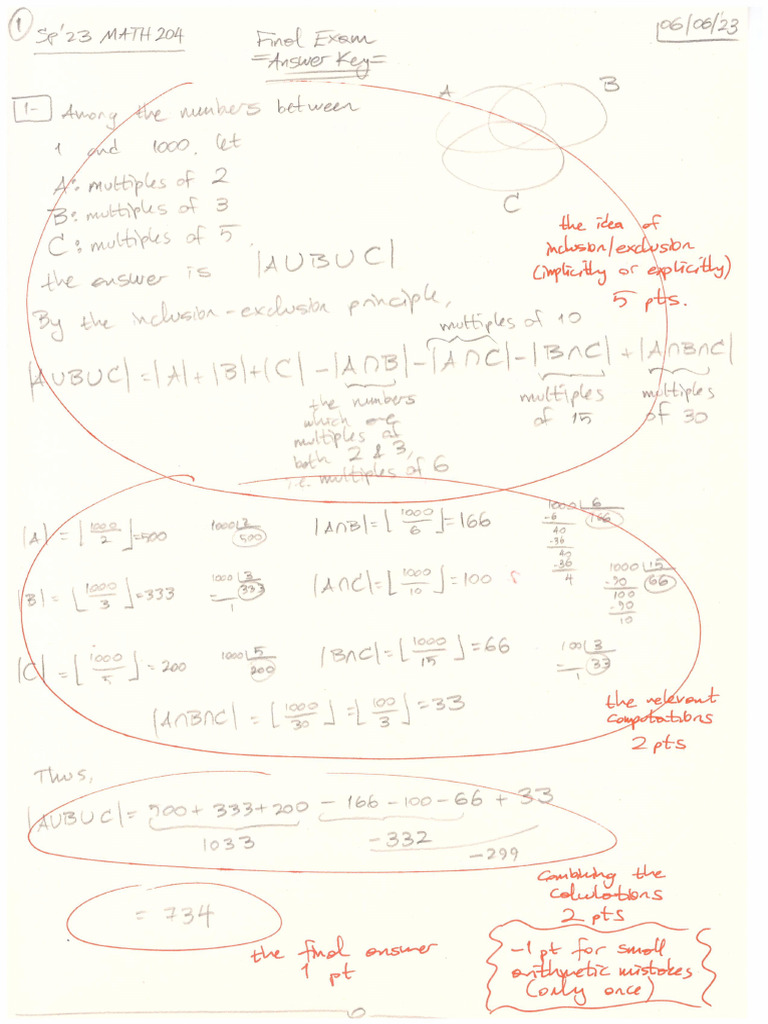 1
Sp'23 MATH 204
Final Exam
=Answer Key=
06/06/'23
1- Among the numbers between
1 and 1000. let
A: multiples of 2
B: multiples of 3
C: multiples of 5.
the answer is |A∪B∪C|
A
B
C
the idea of
inclusion/exclusion
(implicitly or explicitly)
5 pts.
By the inclusion-exclusion principle,
multiples of 10
|A∪B∪C| = |A| + |B| + |C| - |A∩B| - |A∩C| - |B∩C| + |A∩B∩C|
the numbers
which are
multiples of
both 2 & 3,
i.e. multiples of 6
multiples
of 15
multiples
of 30
|A| = ⌊1000/2⌋ = 500
1000 2
500
|A∩B| = ⌊1000/6⌋ = 166
1000 6
-6 166
40
-36
40
-36
4
|B| = ⌊1000/3⌋ = 333
1000 3
333
1
|A∩C| = ⌊1000/10⌋ = 100
1000 15
-90 66
100
-90
10
|C| = ⌊1000/5⌋ = 200
1000 5
200
|B∩C| = ⌊1000/15⌋ = 66
100 3
33
1
|A∩B∩C| = ⌊1000/30⌋ = ⌊100/3⌋ = 33
the relevant
computations
2 pts
Thus,
|A∪B∪C| = 500 + 333 + 200 - 166 - 100 - 66 + 33
1033
-332
-299
= 734
combining the
calculations
2 pts
the final answer
1 pt
-1 pt for small
arithmetic mistakes
(only once)